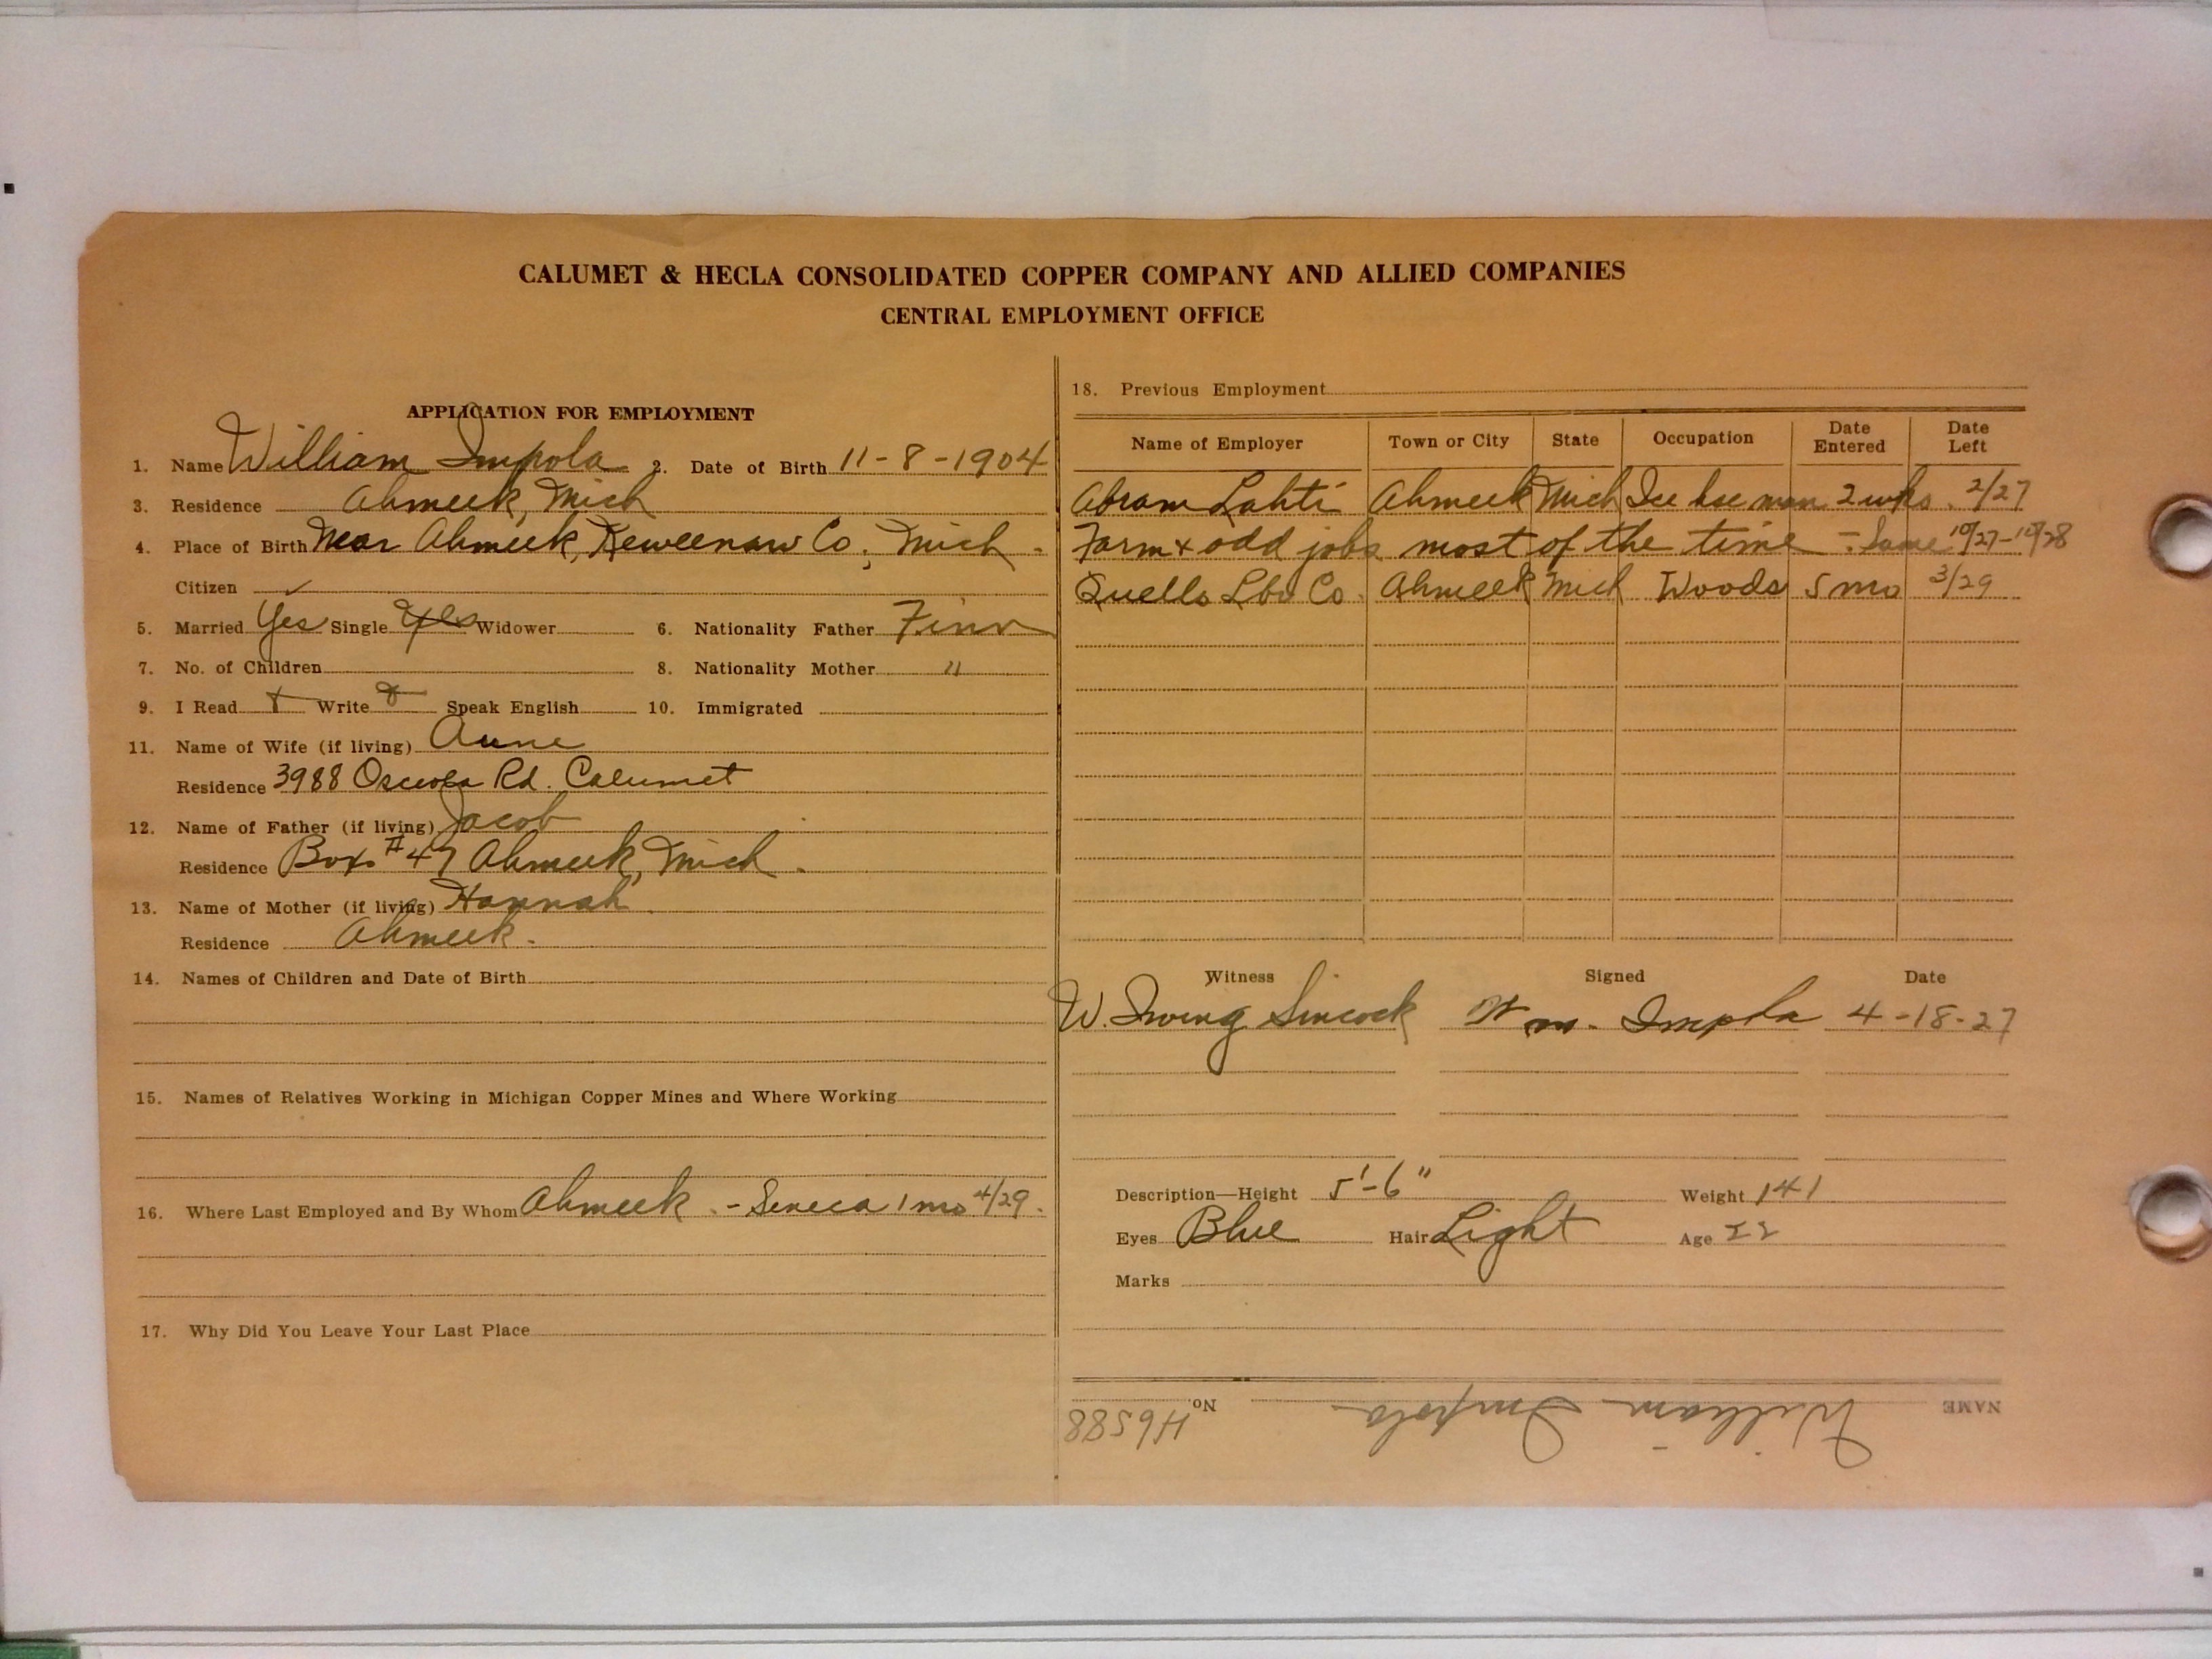 CALUMET & HECLA CONSOLIDATED COPPER COMPANY AND ALLIED COMPANIES
CENTRAL EMPLOYMENT OFFICE
APPLICATION FOR EMPLOYMENT
1. Name William Impola 2. Date of Birth 11-8-1904
3. Residence Ahmeek, Mich
4. Place of Birth Near Ahmeek, Keweenaw Co, Mich.
Citizen ✓
5. Married Yes Single Yes Widower 6. Nationality Father Finn
7. No. of Children 8. Nationality Mother "
9. I Read Write Speak English 10. Immigrated
11. Name of Wife (if living) Aune
Residence 3988 Osceola Rd. Calumet
12. Name of Father (if living) Jacob
Residence Box #47 Ahmeek, Mich.
13. Name of Mother (if living) Hannah
Residence Ahmeek.
14. Names of Children and Date of Birth
15. Names of Relatives Working in Michigan Copper Mines and Where Working
16. Where Last Employed and By Whom Ahmeek. - Seneca 1 mo 4/29.
17. Why Did You Leave Your Last Place
18. Previous Employment
Name of Employer Town or City State Occupation Date Entered Date Left
Abram Lahti Ahmeek Mich Ice hse man 2 wks. 2/27
Farm + odd jobs most of the time - Same 10/27-10/28
Quello Lbr Co. Ahmeek Mich Woods 5 mo 3/29
Witness Signed Date
W. Irving Sincock Wm. Impola 4-18-27
Description—Height 5'-6" Weight 141
Eyes Blue Hair Light Age 22
Marks
NAME William Impola No. H6588